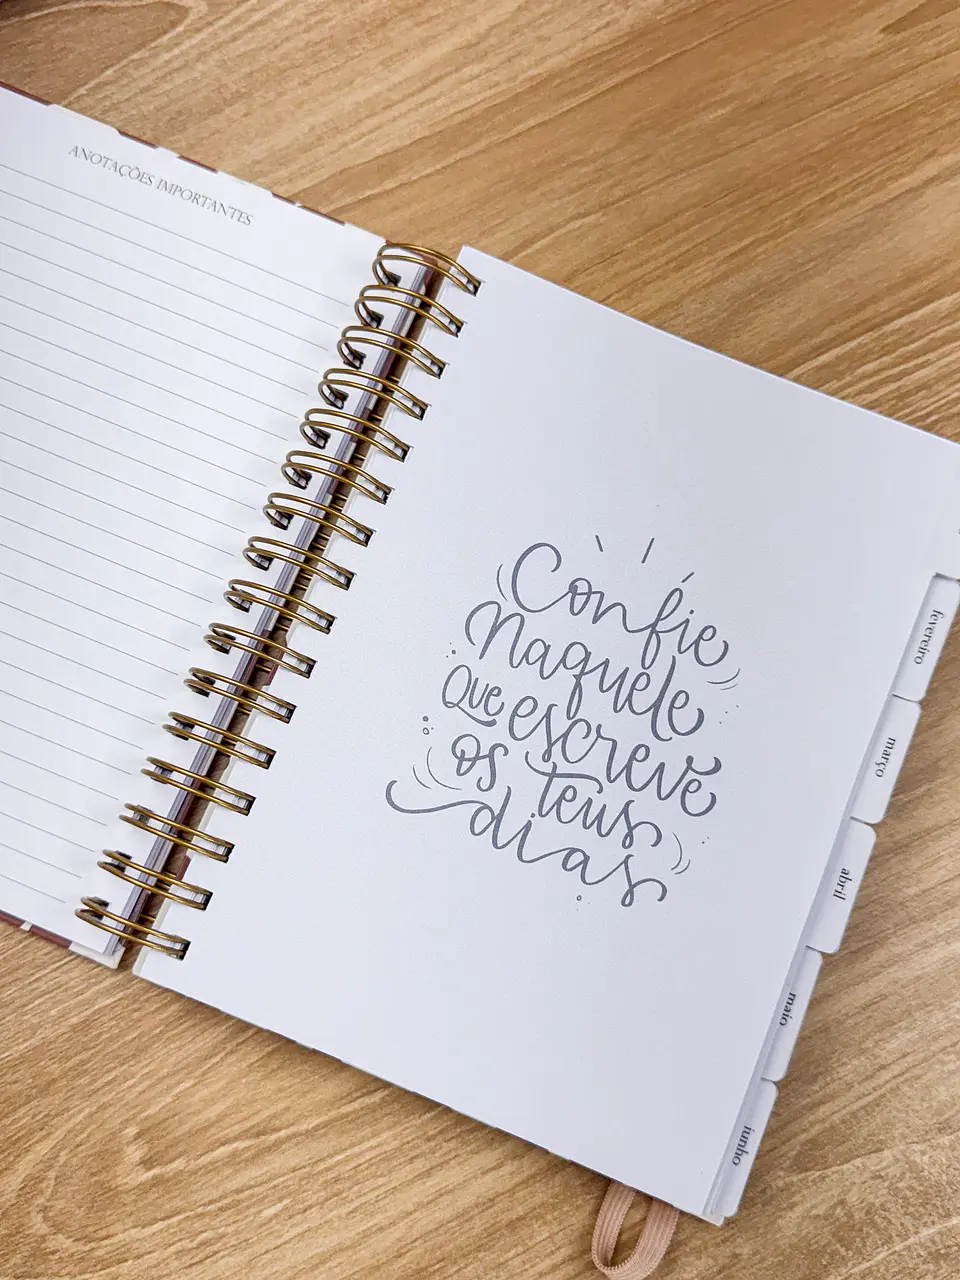 ANOTAÇÕES IMPORTANTES
Confie
Naquele
Que escreve
os teus
dias
fevereiro
março
abril
maio
junho